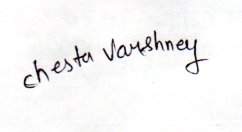 chesta Varshney